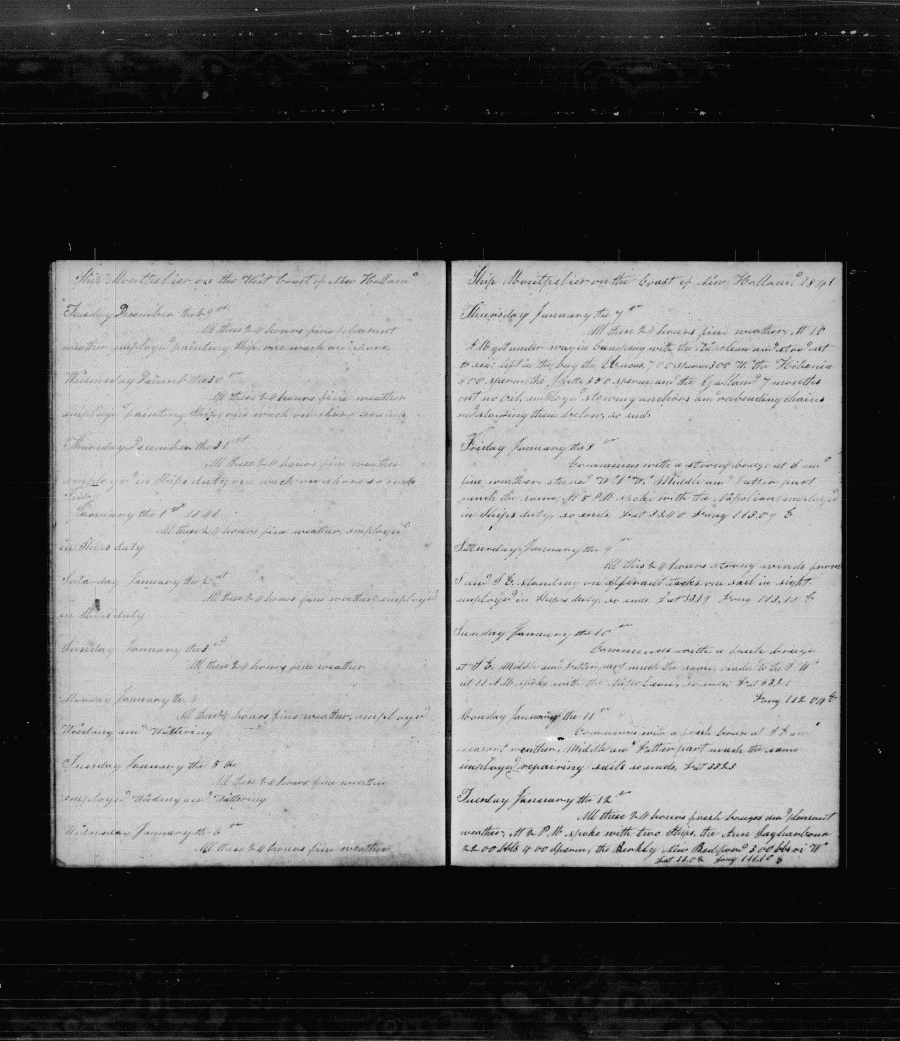 Ship Montpelier on the West Coast of New Holland
Tuesday December the 29th
All these 24 hours fine pleasant
weather employd painting ship, one wach on shore
Wednesday Decemb the 30th
All these 24 hours fine weather
employd painting Ship, one wach on shore so ends
Thursday December the 31st
All these 24 hours fine weather
employd in Ships duty one wach on shore so ends
Friday
January the 1st 1841
All these 24 hours fine weather employd
in Ships duty
Saturday January the 2
All these 24 hours fine weather employd
in Ships duty
Sunday January the 3d
All these 24 hours fine weather
Monday January the 4
All these 24 hours fine weather employd
Wooding and Wattering
Tuesday January the 5 th
All these 24 hours fine weather
employd Wooding and Wattering
Wednesday January the 6th
All these 24 hours fine weather
Ship Montpelier on the Coast of New Holland 1841
Thursday January the 7th
All these 24 hours fine weather, At 10
A M got under way in company with the Napolean and stood out
to sea left in the bay the 700 sperm 300 W the Hibenia
500 sperm the 350 sperm and the 7 months
out no oil, employd stowing anchors and unbending chains
and stowing them below, so ends
Friday January the 8th
Commences with a strong breeze at S and
fine weather W.S.W. Middle and Latter part
much the same, At 5 P.M spoke with the Napolean, employd
in Ships duty, so ends Lat 3340 Long 113,07 E
Saturday January the 9th
All this 24 hours strong winds from
S and S E, standing on different tacks, one sail in sight
employd in Ships duty, so ends. Lat 3319 Long 113,11 E
Sunday January the 10th
Commences with a fresh breeze
at S E, Middle and Latter part much the same, to the S W
at 11 A M spoke with the Napolean, so ends Lat 3321
Long 112 04 E
Monday January the 11th
Commences with a fresh breeze at S E and
pleasant weather, Middle and Latter part much the same
employd repairing sails so ends, Lat 3323
Tuesday January the 12th
All these 24 hours fresh breezes and pleasent
weather, At 2 P.M spoke with two Ships, the Ann Sagharbour
2200 bbls 400 Sperm, the Berkly New Bedford 300 bbls W
Lat 33.02 Long 111.10 E